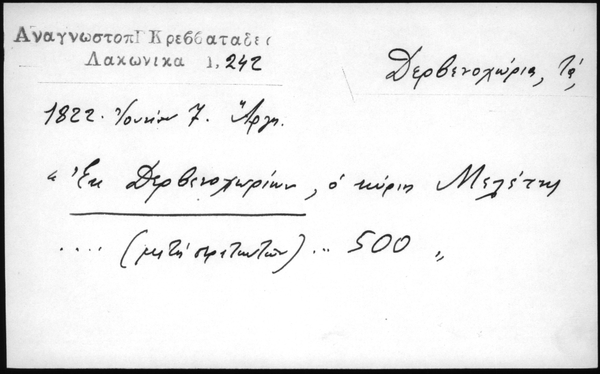 Αναγνωστοπ Κρεββαταδες
Λακωνικα 1, 242
Δερβενοχώρια, Τά,
1822. Ἰουνίου 7. Ἄργ.
« Ἐκ Δερβενοχωρίων, ὁ κύριος Μελέτης
.... (μετὰ στρατιωτῶν) ... 500 „